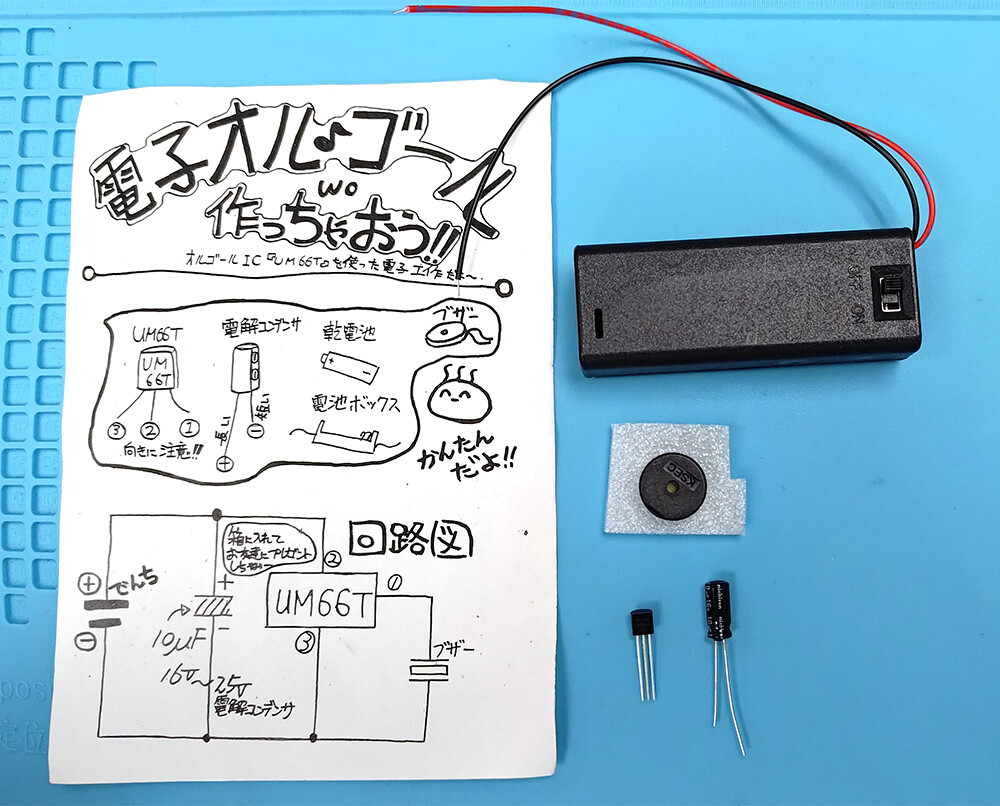 電子オルゴール
wo
作っちゃおう!!
オルゴールIC『UM66T』を使った電子工作だよ〜.
UM66T
UM
66T
③ ② ①
向きに注意!!
電解コンデンサ
長い
短い
⊕
⊖
乾電池
+ -
電池ボックス
ブザー
かんたん
だよ!!
回路図
箱に入れて
お友達にプレゼント
しちゃおー
⊕
でんち
⊖
+
-
10μF
16V〜25V
電解コンデンサ
②
①
UM66T
③
ブザー
OFF ON
KSEC
nichicon
定位